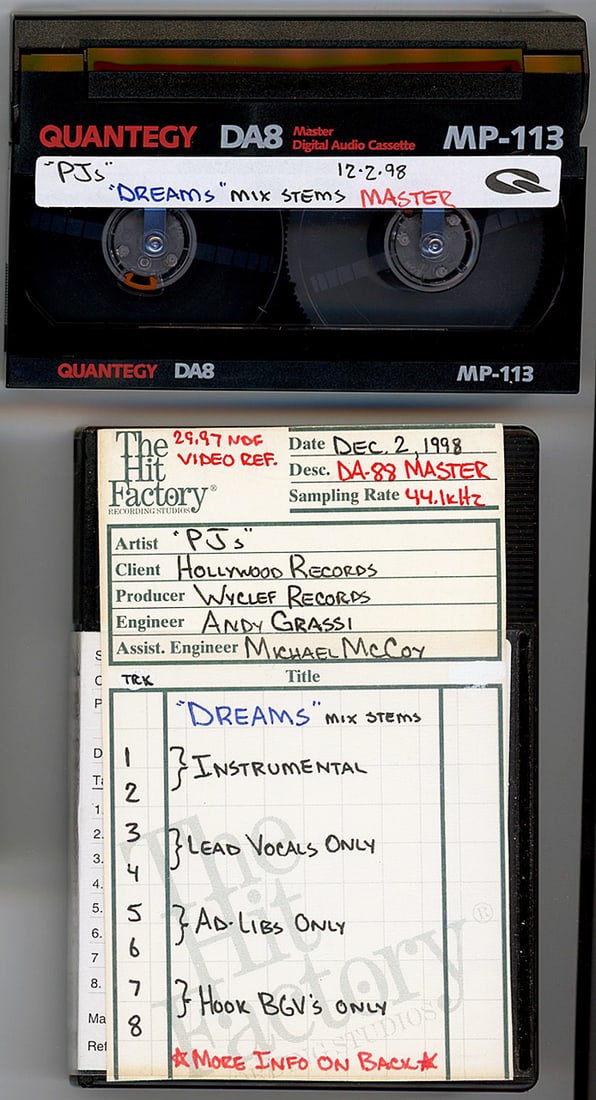 QUANTEGY DA8 Master Digital Audio Cassette MP-113
"PJs" 12·2·98
"DREAMS" MIX STEMS MASTER
QUANTEGY DA8 MP-113
The Hit Factory®
RECORDING STUDIOS
29.97 NDF
VIDEO REF.
Date DEC. 2, 1998
Desc. DA-88 MASTER
Sampling Rate 44.1kHz
Artist "PJs"
Client HOLLYWOOD RECORDS
Producer WYCLEF RECORDS
Engineer ANDY GRASSI
Assist. Engineer MICHAEL MCCOY
TRK Title
"DREAMS" MIX STEMS
1
2 } INSTRUMENTAL
3
4 } LEAD VOCALS ONLY
5
6 } AD-LIBS ONLY
7
8 } HOOK BGV'S ONLY
☆MORE INFO ON BACK☆
The Hit Factory®
RECORDING STUDIOS
S
C
P
D
Ta
1.
2.
3.
4.
5.
6.
7
8.
Ma
Ref